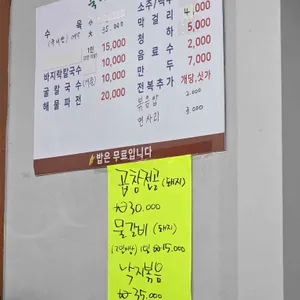 수 육
大 35.000
1인 15,000
바지락칼국수 10,000
굴 칼 국 수 10,000
해 물 파 전 20,000
소주/맥주 4,000
막 걸 리 5,000
청 하 5,000
음 료 수 2,000
만 두 7,000
전복추가 개당,싯가
볶음밥 2.000
면사리 3.000
밥은 무료입니다
곱창전골 (돼지)
₩30.000
물갈비 (돼지)
1인 ₩15.000
낙지볶음
₩35.000